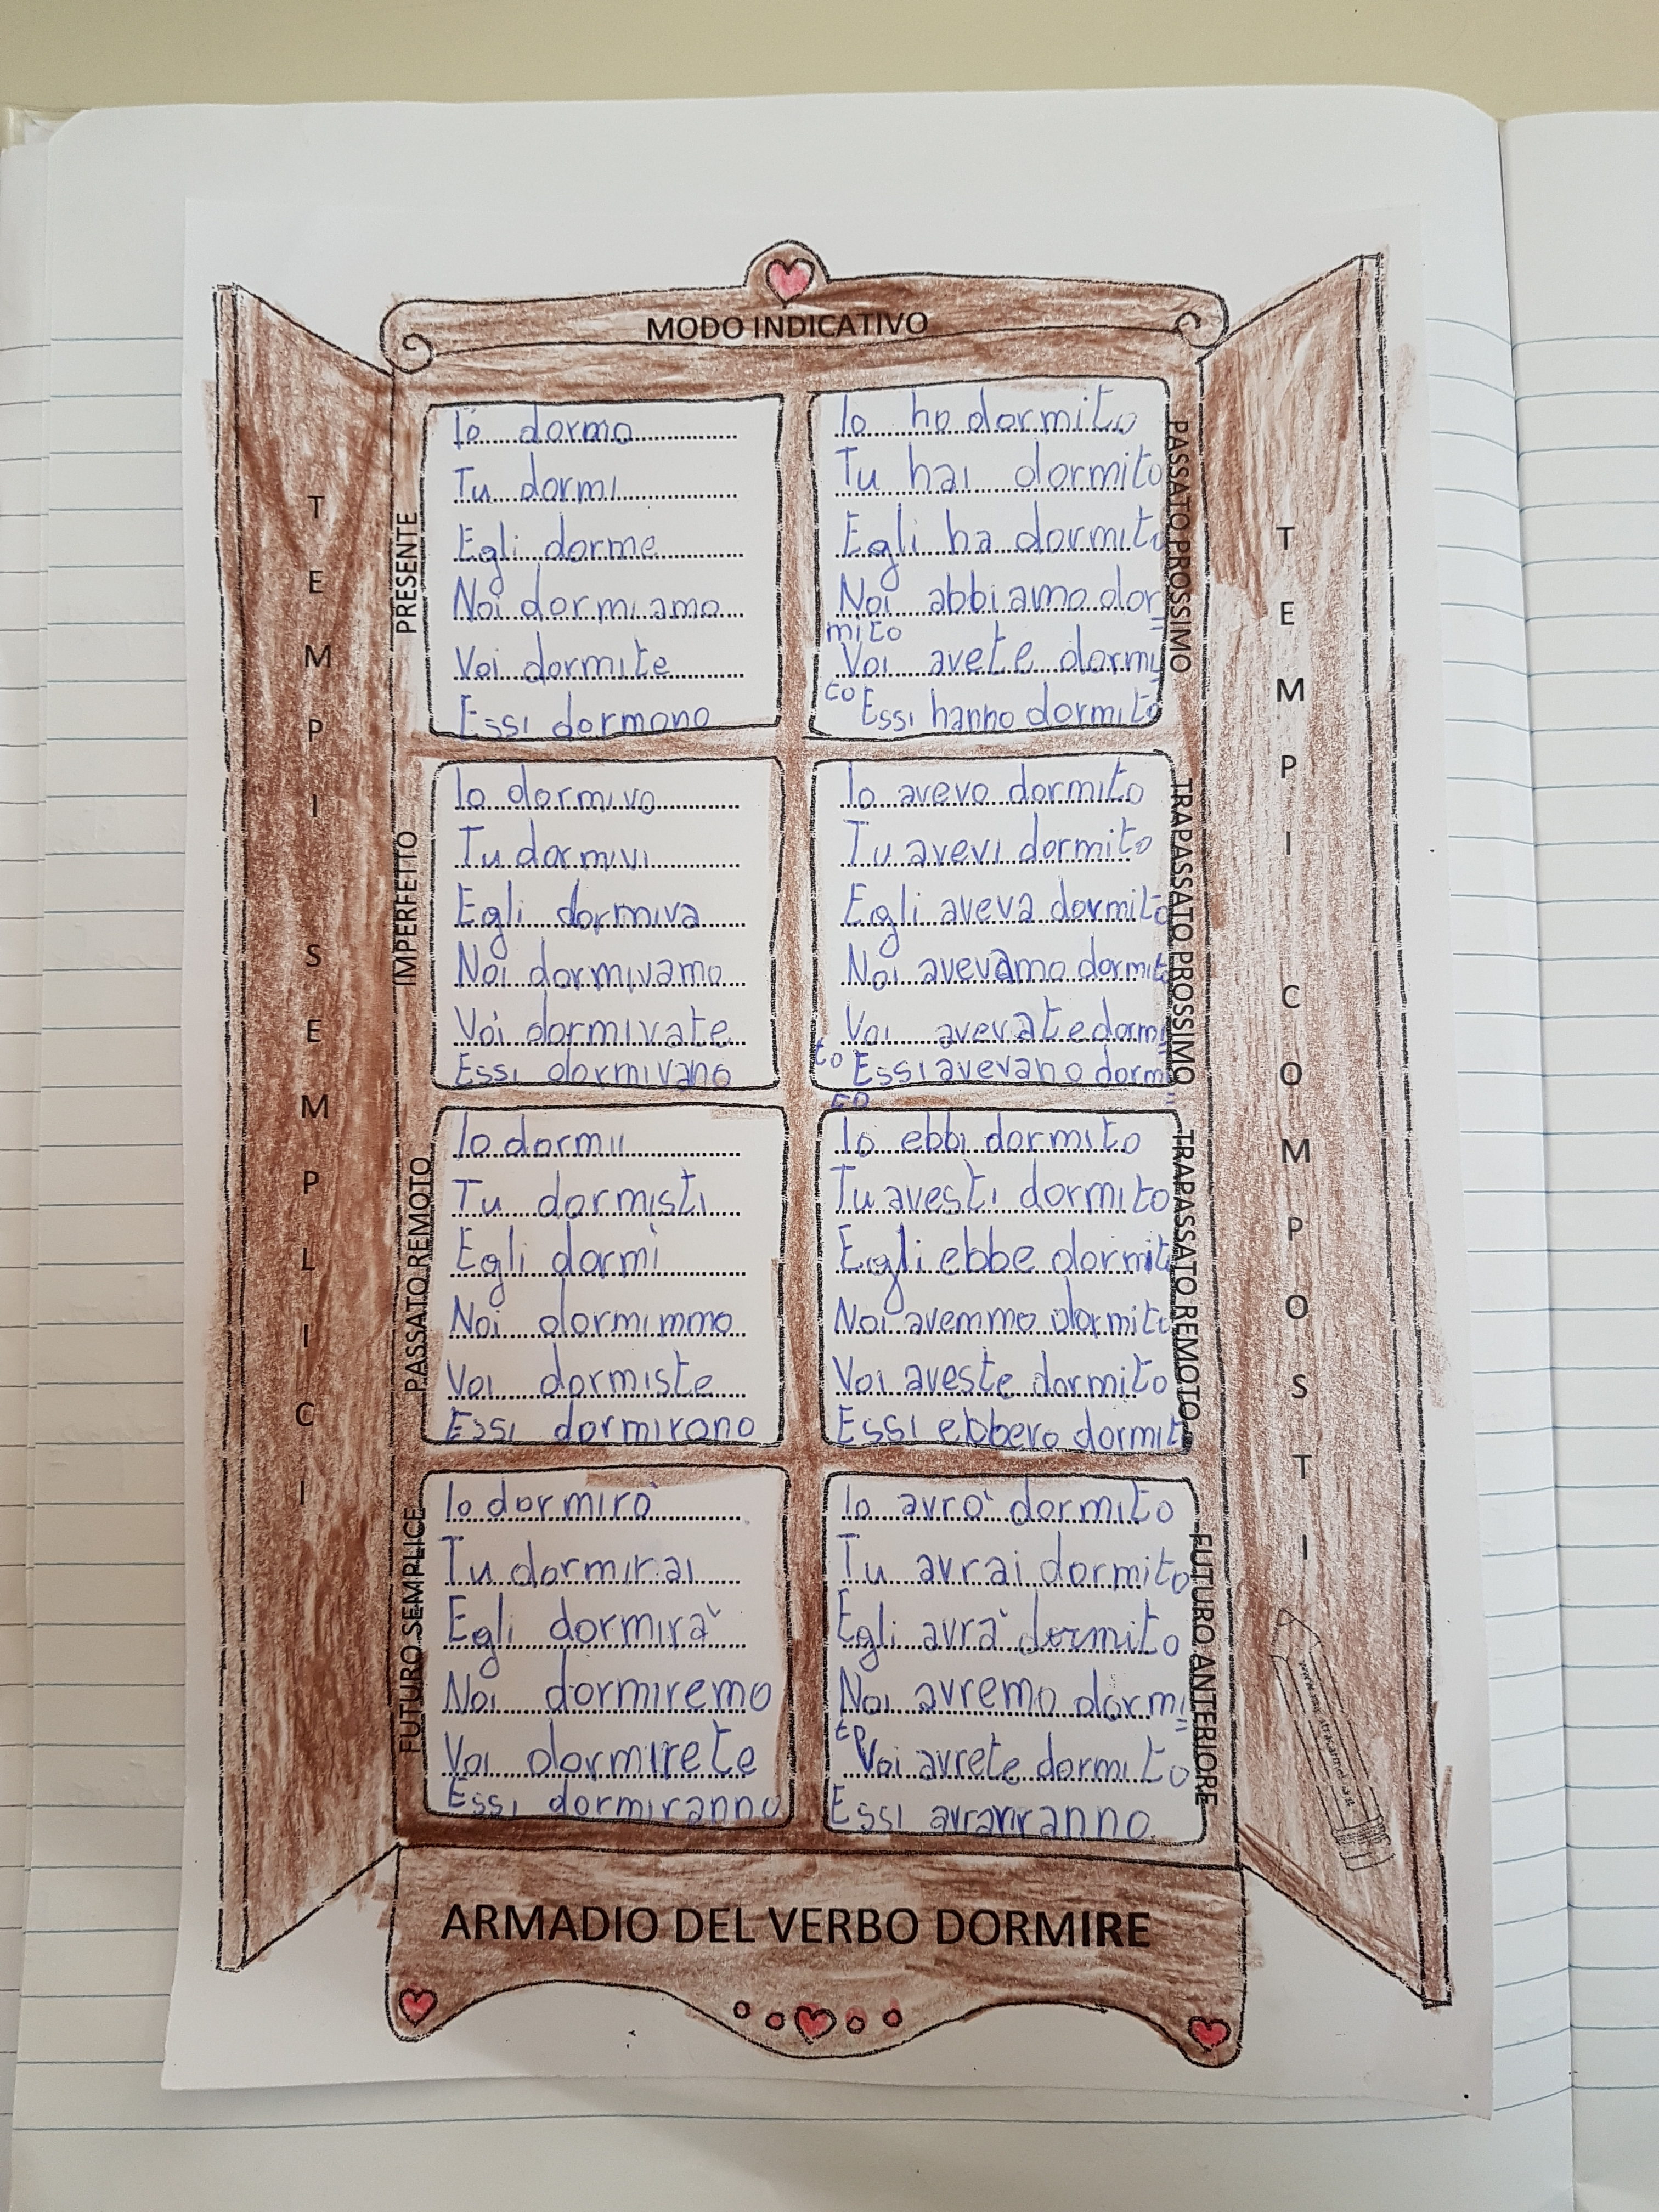 MODO INDICATIVO
TEMPI SEMPLICI
PRESENTE
Io dormo
Tu dormi
Egli dorme
Noi dormiamo
Voi dormite
Essi dormono
IMPERFETTO
Io dormivo
Tu dormivi
Egli dormiva
Noi dormivamo
Voi dormivate
Essi dormivano
PASSATO REMOTO
Io dormii
Tu dormisti
Egli dormì
Noi dormimmo
Voi dormiste
Essi dormirono
FUTURO SEMPLICE
Io dormirò
Tu dormirai
Egli dormirà
Noi dormiremo
Voi dormirete
Essi dormiranno
TEMPI COMPOSTI
PASSATO PROSSIMO
Io ho dormito
Tu hai dormito
Egli ha dormito
Noi abbiamo dor=
mito
Voi avete dormi=
to
Essi hanno dormito
TRAPASSATO PROSSIMO
Io avevo dormito
Tu avevi dormito
Egli aveva dormito
Noi avevamo dormito
Voi avevate dormi=
to
Essi avevano dormi=
to
TRAPASSATO REMOTO
Io ebbi dormito
Tu avesti dormito
Egli ebbe dormito
Noi avemmo dormito
Voi aveste dormito
Essi ebbero dormito
FUTURO ANTERIORE
Io avrò dormito
Tu avrai dormito
Egli avrà dormito
Noi avremo dormi=
to
Voi avrete dormito
Essi
ARMADIO DEL VERBO DORMIRE